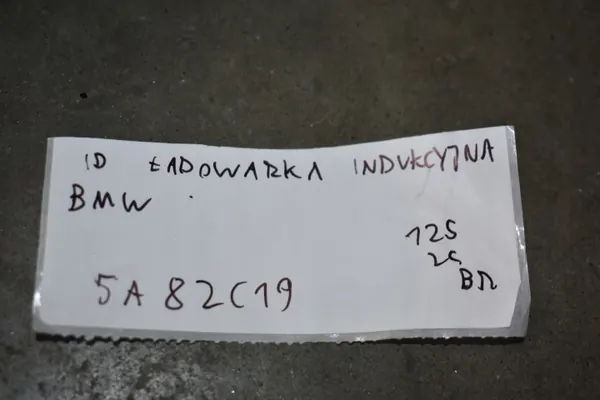 ID ŁADOWARKA INDUKCYJNA
BMW
125
25
BR
5A82C19